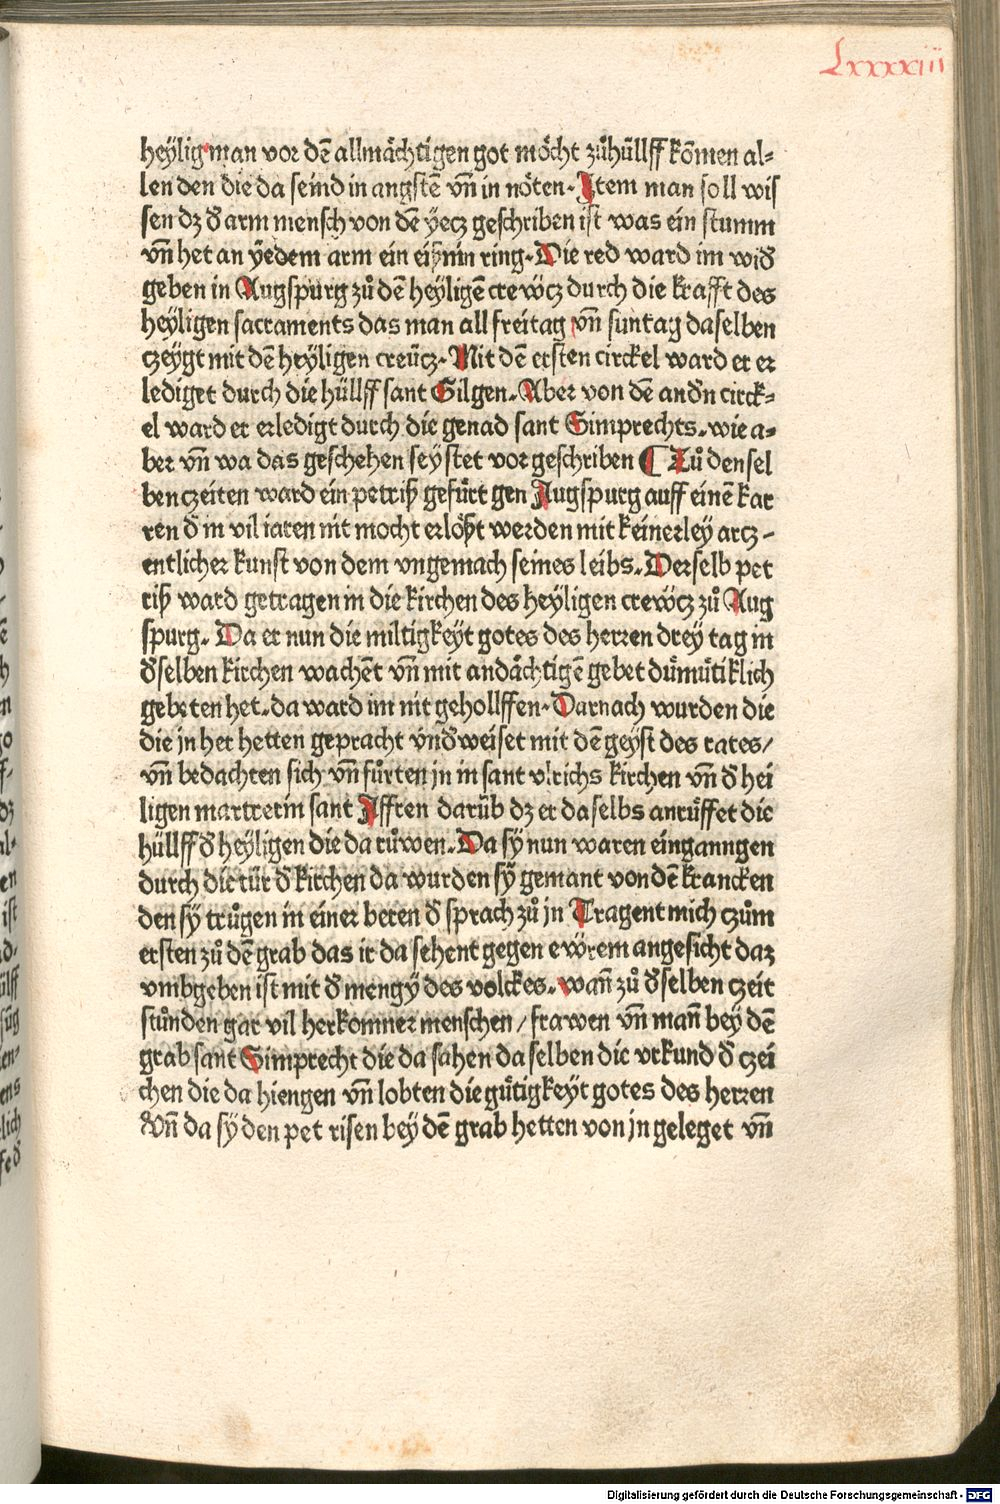 Lxxxxiii
heÿlig man vor dē allmåchtigen got möcht zůhüllff kōmen al⸗
len den die da seind in angstē vn̄ in nöten. Item man soll wis
sen dz đ arm mensch von dē ÿecz geschriben ist was ein stumm
vn̄ het an ÿedem arm ein eiſznin ring. Die red ward im wiđ
geben in Augspurg zů dē heÿligē crewcz durch die krafft des
heÿligen sacraments das man all freitag vn̄ suntag daselben
czeÿgt mit dē heÿligen creücz. Mit dē ersten circkel ward er er
lediget durch die hüllff sant Gilgen. Aber von dē andn̄ circk⸗
el ward er erledigt durch die genad sant Simprechts. wie a⸗
ber vn̄ wa das geschehen seÿ stet vor geschriben ¶ Zů den sel
ben czeiten ward ein petriß gefürt gen Augspurg auff einē kar
ren đ in vil iaren nit mocht erlößt werden mit keinerleÿ arcz⸗
entlicher kunst von dem vngemach seines leibs. Derselb pet
riß ward getragen in die kirchen des heÿligen crewcz zů Aug
spurg. Da er nun die miltigkeÿt gotes des herren dreÿ tag in
đselben kirchen wachēt vn̄ mit andåchtigē gebet dümütiklich
gebeten het. da ward im nit gehollffen. Darnach wurden die
die jn her hetten gepracht vnđweiset mit dē geÿst des rates/
vn̄ bedachten sich vn̄ fürten jn in sant vlrichs kirchen vn̄ đ hei
ligen martrerin sant Affren darüb dz er daselbs anrüffet die
hüllff đ heÿligen die da růwen. Da sÿ nun waren einganngen
durch die tür đ kirchen da wurden sÿ gemant von dē krancken
den sÿ trůgen in einer beren đ sprach zů jn Tragent mich czům
ersten zů dē grab das ir da sehent gegen ewrem angesicht daz
vmbgeben ist mit đ mengÿ des volckes. wan̄ zů đselben czeit
stůnden gar vil herkomner menschen / frawen vn̄ man̄ beÿ dē
grab sant Simprecht die da sahen daselben die vrkund đ czei
chen die da hiengen vn̄ lobten die gütigkeÿt gotes des herren
Vn̄ da sÿ den pet risen beÿ dē grab hetten von jn geleget vn̄
Digitalisierung gefördert durch die Deutsche Forschungsgemeinschaft - DFG